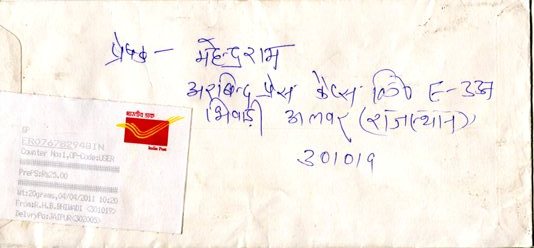 प्रेषक - महेन्द्रराम
अरविन्द प्रेस
E-33
भिवाड़ी अलवर (राजस्थान)
301019
भारतीय डाक
India Post
SP
ER076782948IN
Counter No:1,OP-Code:USER
PrePS:Rs25.00
Wt:20grams,04/04/2011 10:20
From:R.H.B.BHIWADI <301019>
Delvry@o:JAIPUR(302005)